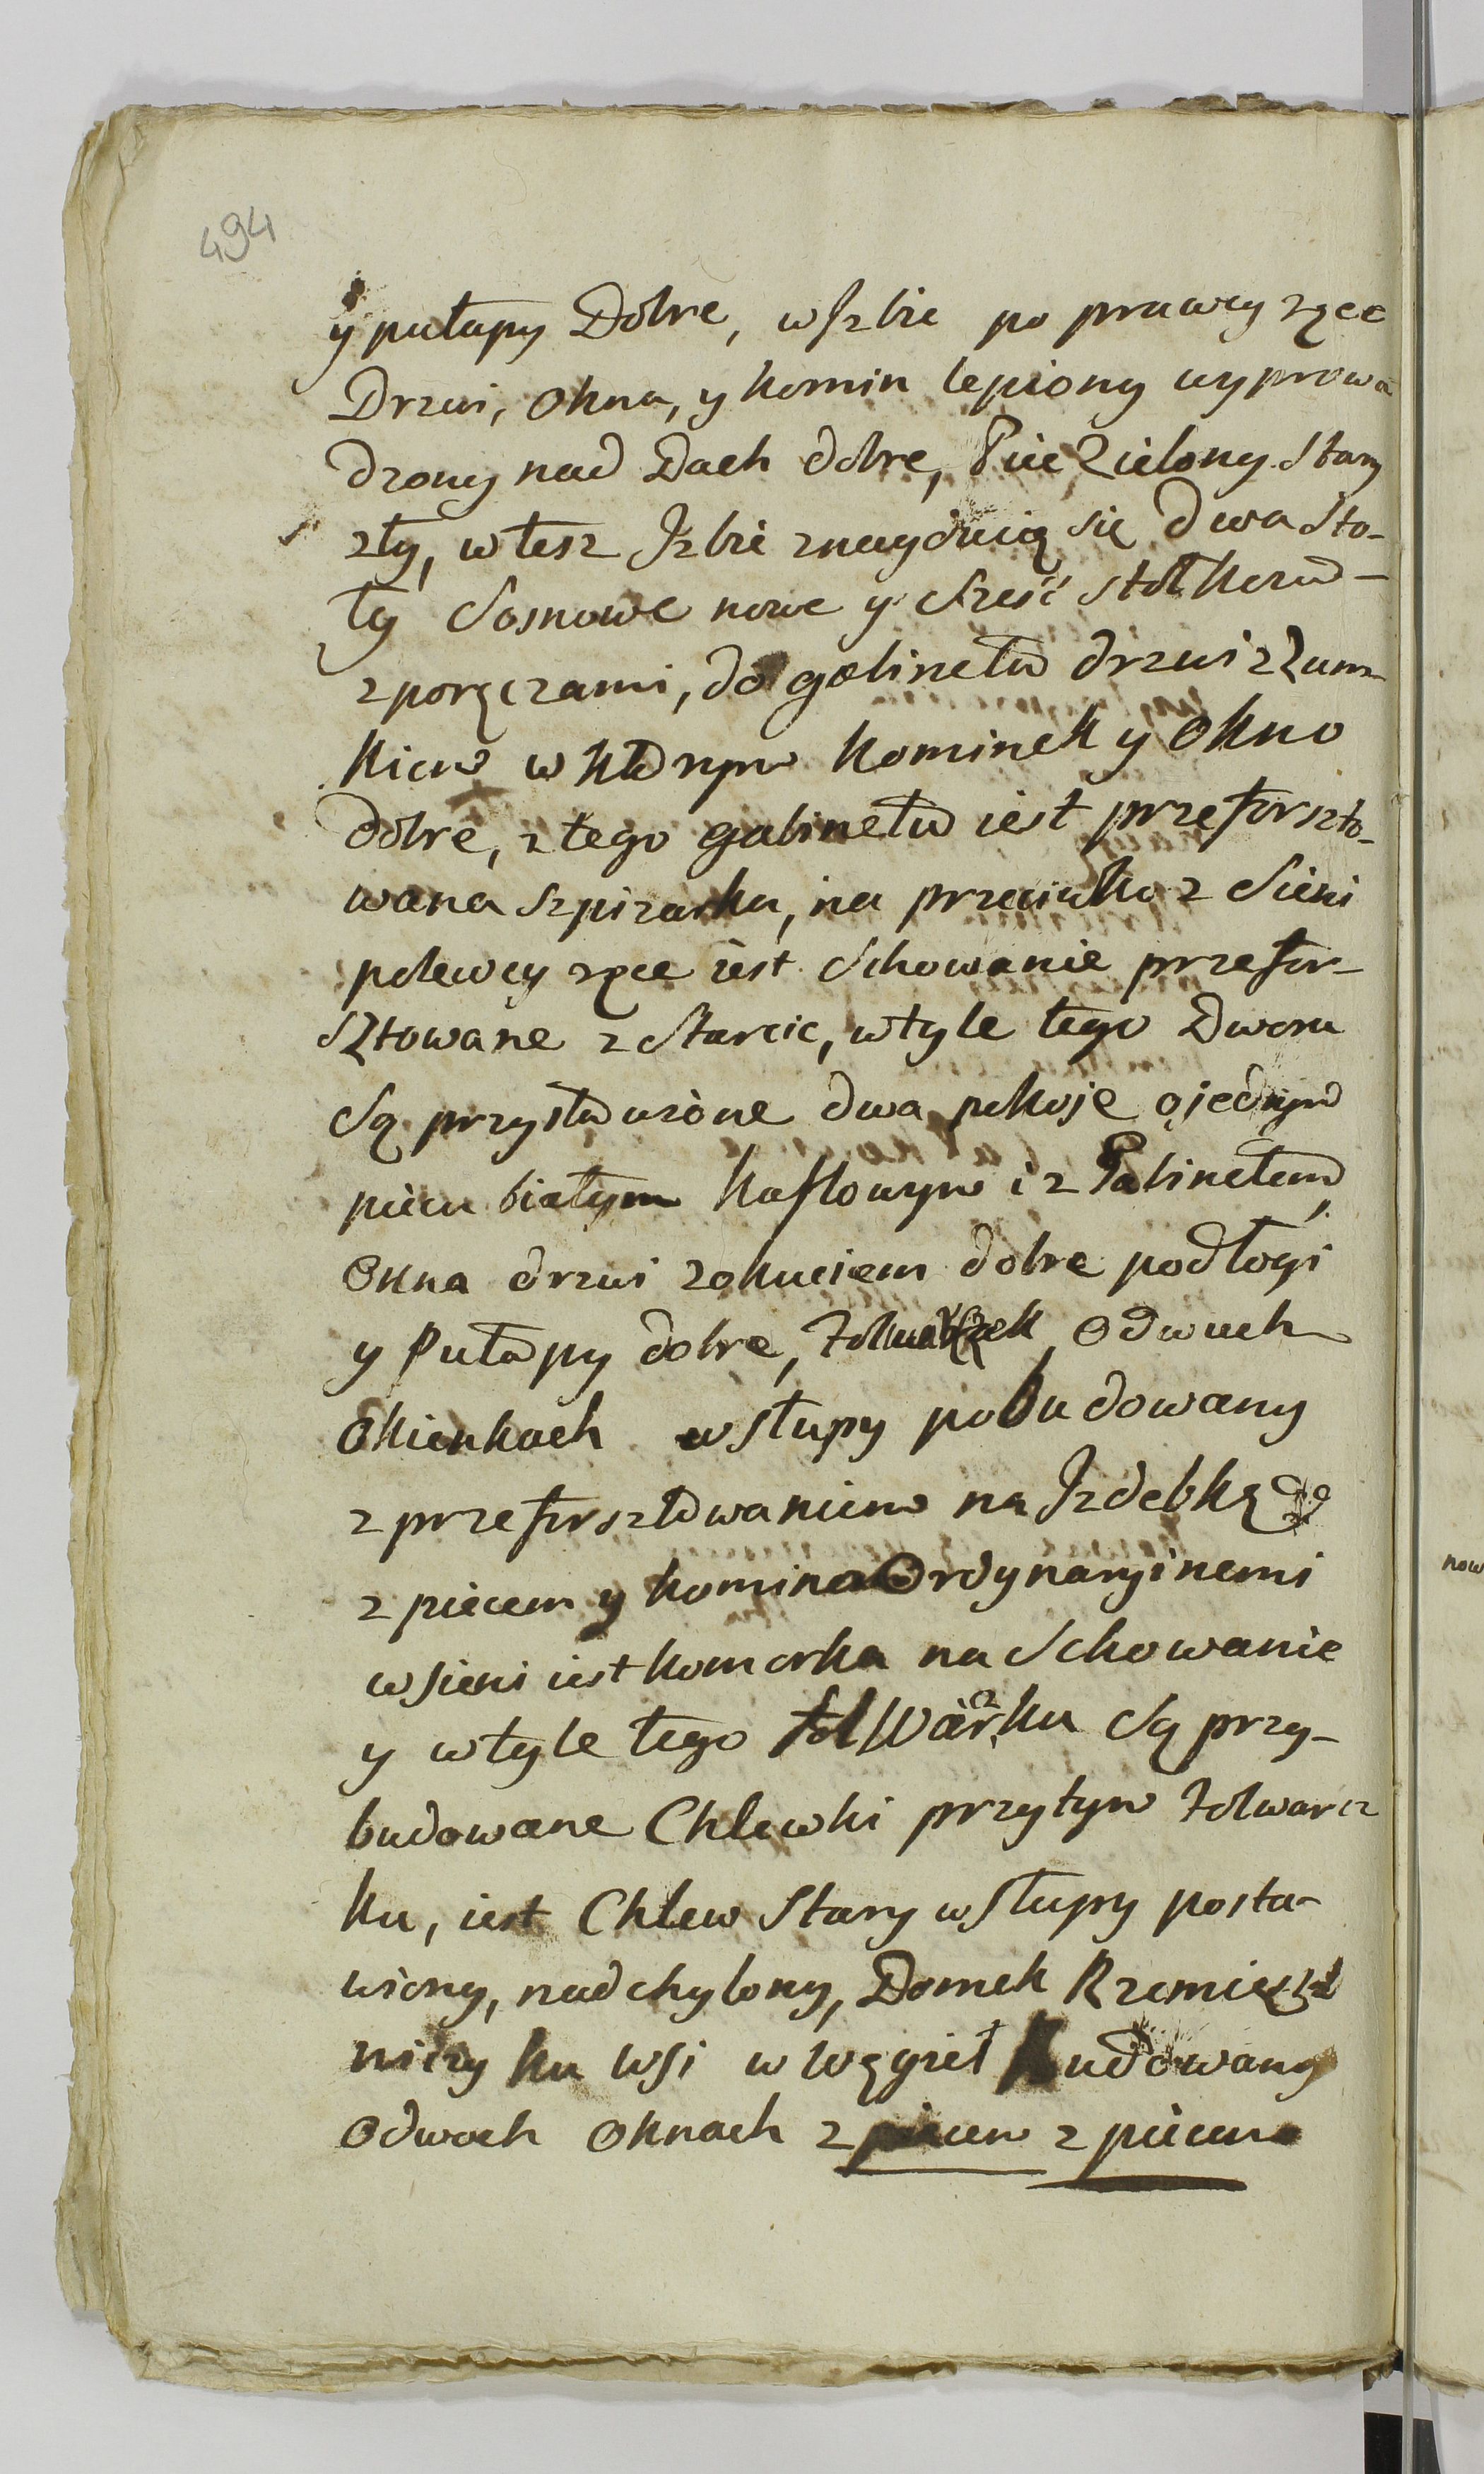 494
y pułapy Dobre, w Jzbie po prawey ręce
Drzwi, Okna, y komin lepiony wyprowa
dzony nad Dach dobre, Piec Zielony Stary
zły, w tesz Jzbie znayduią się dwa sto-
ły Sosnowe nowe y Sześć stołkow -
z poręczami, do gabinetu drzwi z Zam-
kiem w ktorym kominek y Okno
dobre, z tego gabinetu iest przeforszto-
wana Szpizarka, na przeciwko z Sieni
po lewey ręce iest Schowanie przefor-
sztowane z Starcic, w tyle tego Dworu
Są przystawione dwa pokoje o jednym
piecu białym kaflowym i z Gabinetem,
Okna drzwi z okuciem dobre podłogi
y Pułapy dobre, folwarczek o dwuch
Okienkach w słupy pobudowany
z przeforsztowaniem na Jzdebkę
z piecem y komina Ordynaryinemi
w sieni iest komorka na Schowanie
y w tyle tego folwarku Są przy-
budowane Chlewki przy tym folwarcz
ku, iest Chlew Stary w słupy posta-
wiony, nadchylony, Domek Rzemieśl
niczy ku wsi w węgieł budowany
O dwoch Oknach z piecem z piecem
now